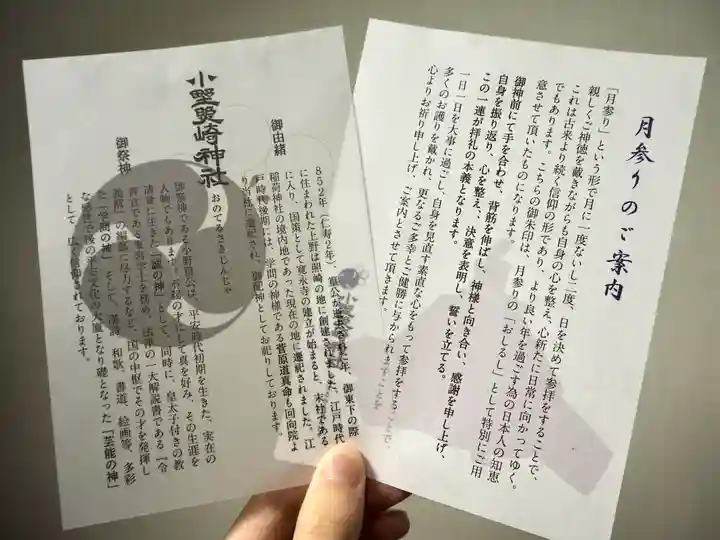 月参りのご案内
「月参り」という形で月に一度ないし二度、日を決めて参拝をすることで、
親しくご神徳を戴きながらも自身の心を整え、心新たに日常に向かってゆく。
これは古来より続く信仰の形であり、より良い年を過ごす為の日本人の知恵
でもあります。こちらの御朱印は、月参りの「おしるし」として特別にご用
意させて頂いたものになります。
御神前にて手を合わせ、背筋を伸ばし、神様と向き合い、感謝を申し上げ、
自身を振り返り、心を整え、決意を表明し、誓いを立てる。
この一連が拝礼の本義となります。
一日一日を大事に過ごし、自身を見直す素直な心をもって参拝をすることで、
多くのお護りを戴かれ、更なるご多幸とご健勝に与かられますことを
心よりお祈り申し上げ、ご案内とさせて頂きます。
小野照崎神社
おのてるさきじんじゃ
御由緒
852年(仁寿2年)、
御東下の際
に住まわれた上野は照崎の地に創建されました。江戸時代
に入り、国策として寛永寺の建立が始まると、末社である
稲荷神社の境内地であった現在の地に遷祀されました。江
戸時代後期には、学問の神様である菅原道真命も回向院よ
り当社に遷祀され、御配神としてお祀りしております。
御祭神
御祭神である小野篁公は、平安時代初期を生きた、実在の
人物でもあります。不羈の才にして真を好み、その生涯を
清廉に生きた「誠の神」として、同時に、皇太子付きの教
育官である東宮学士を務め、法律の一大解説書である『令
義解』の編纂に尽力するなど、国の中枢でその才を発揮し
た「学問の神」、そして、漢詩、和歌、書道、絵画等、多彩
な
後の平安文化の大廈となり礎となった「芸能の神」
として、広く信仰されております。